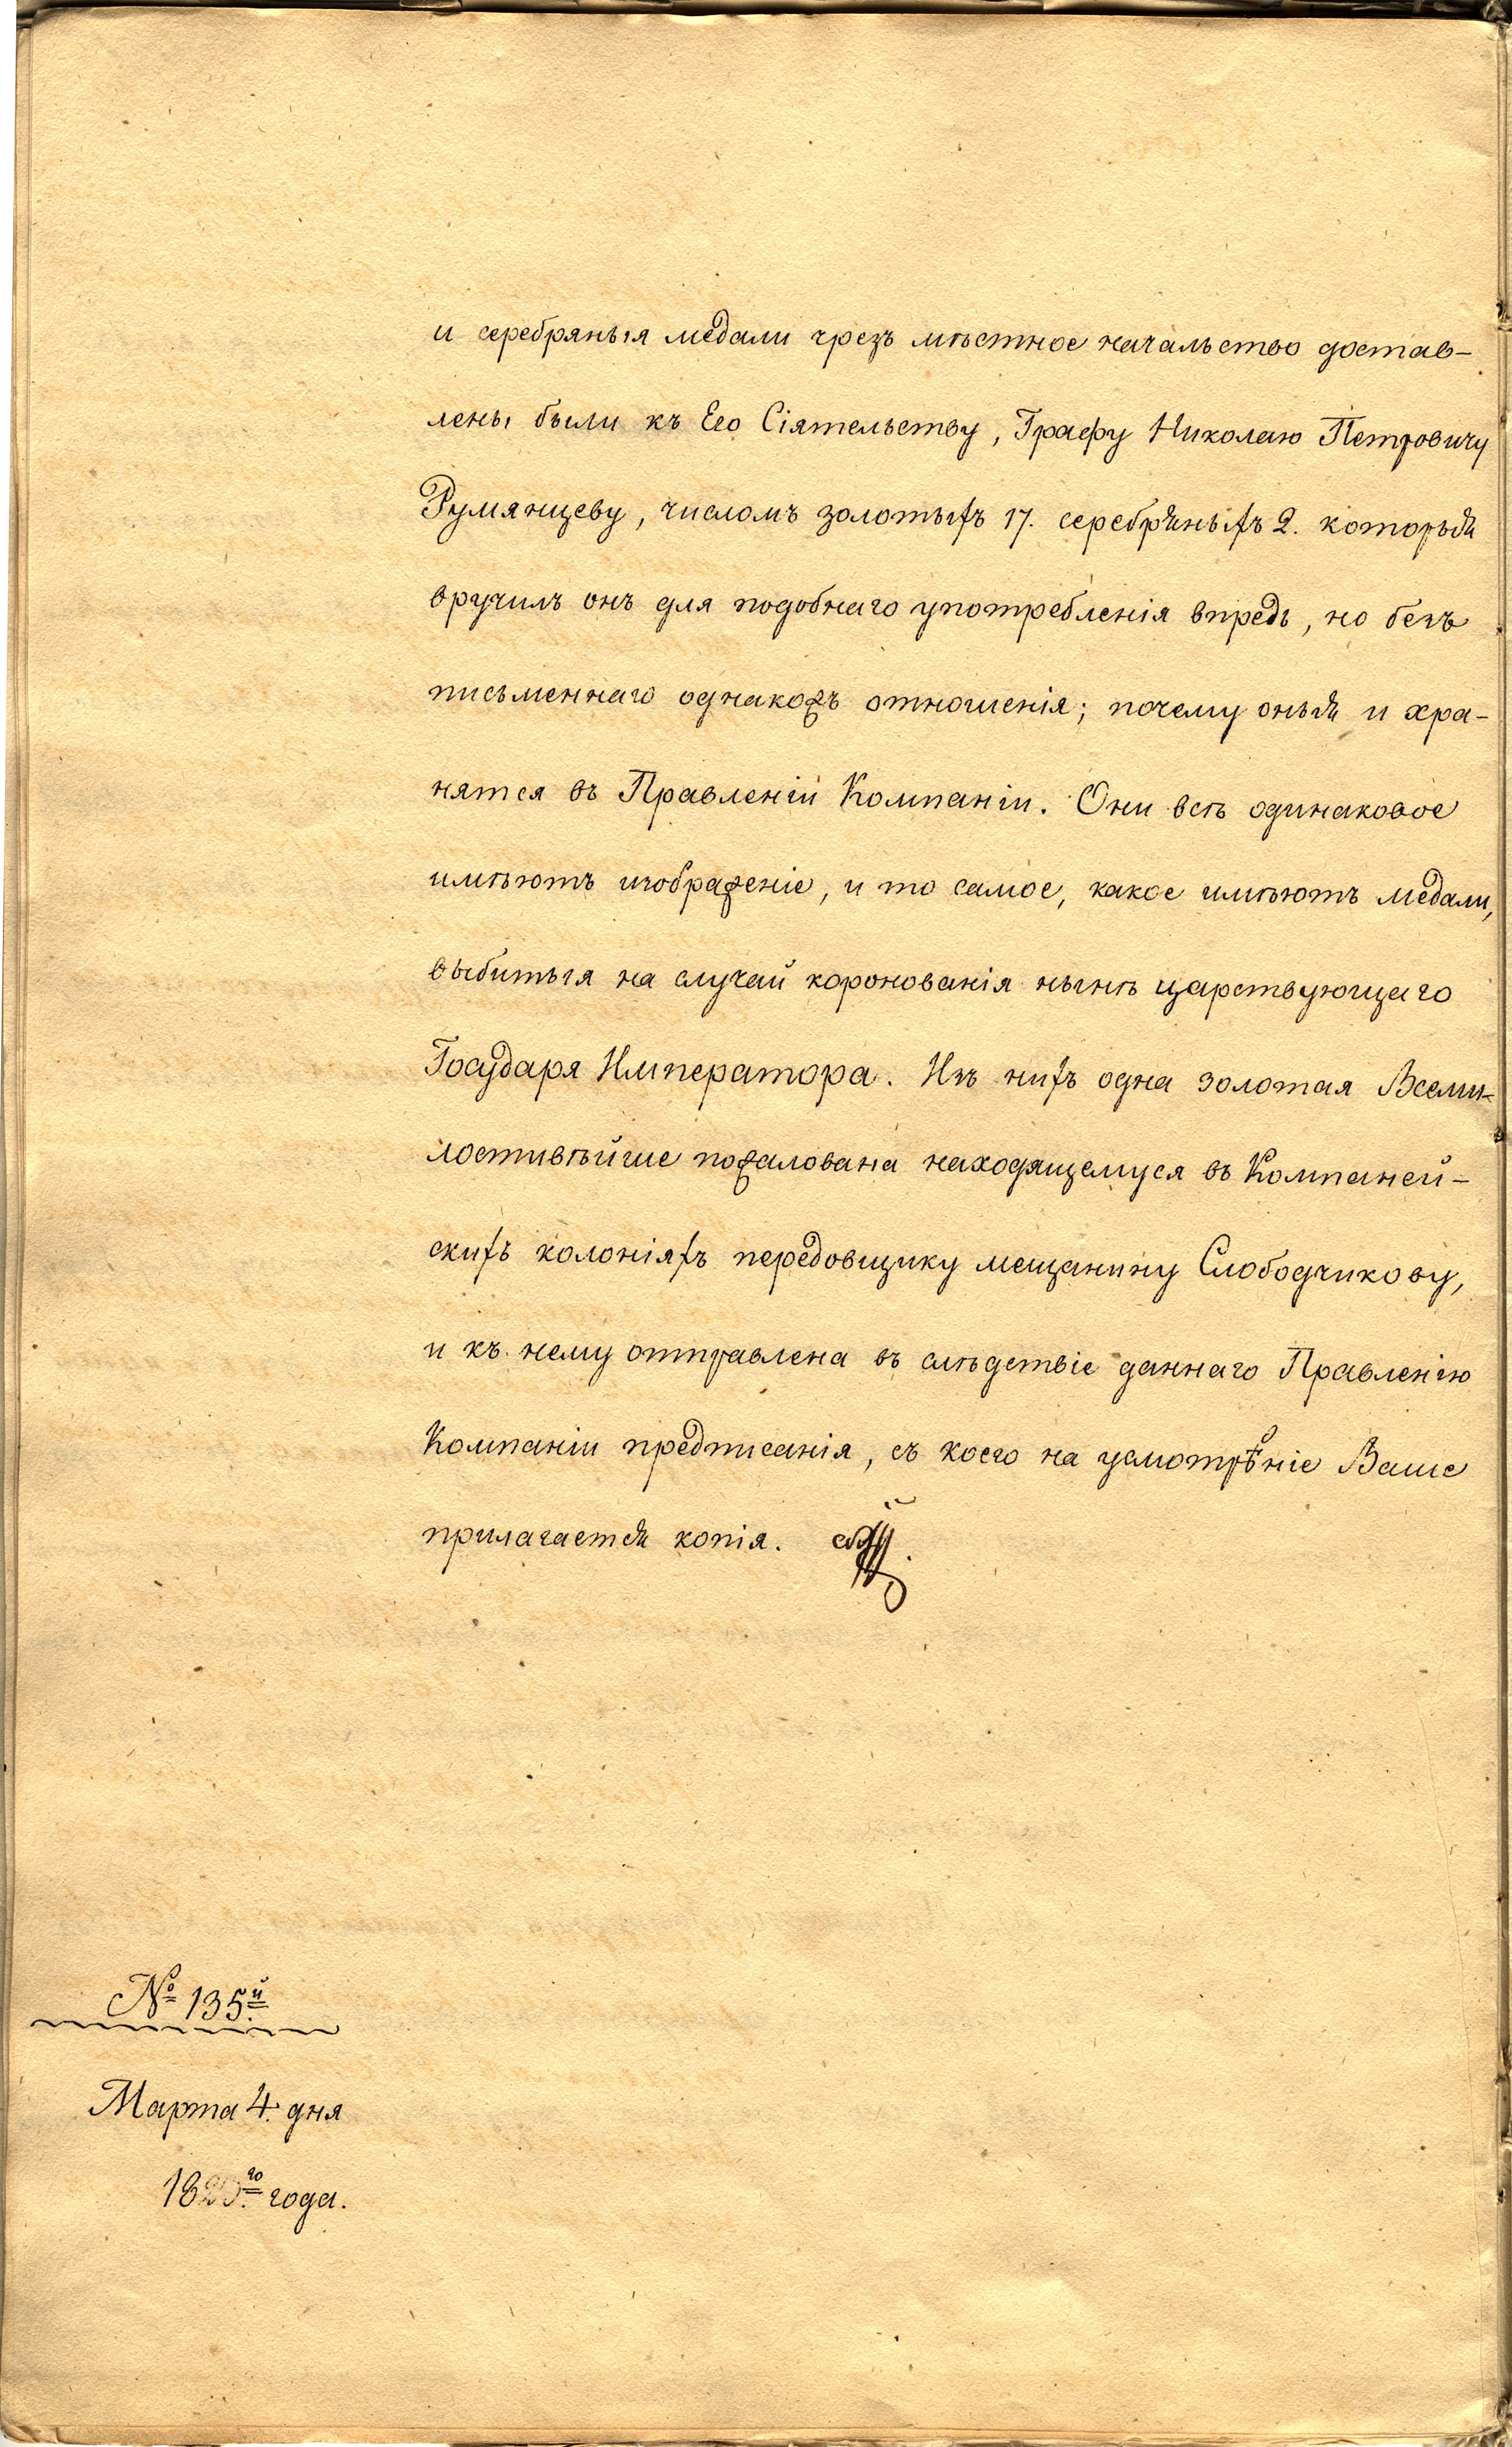 и серебряныя медали чрезъ мѣстное начальство достав-
лены были къ Его Сіятельству, Графу Николаю Петровичу
Румянцеву, числомъ золотыхъ 17. серебряныхъ 2. которыя
вручилъ онъ для подобнаго употребленія впредь, но безъ
письменнаго однакожъ отношенія; почему оныя и хра-
нятся въ Правленіи Компаніи. Они всѣ одинаковое
имѣютъ изображеніе, и то самое, какое имѣютъ медали,
выбитыя на случай коронованія нынѣ царствующаго
Государя Императора. Изъ нихъ одна золотая Всеми-
лостивѣйше пожалована находящемуся въ Компаней-
скихъ колоніяхъ передовщику мещанину Слободчикову,
и къ нему отправлена въ слѣдствіе даннаго Правленію
Компаніи предписанія, съ коего на усмотрѣніе Ваше
прилагается копія.
№ 135й
Марта 4. дня
1820го года.